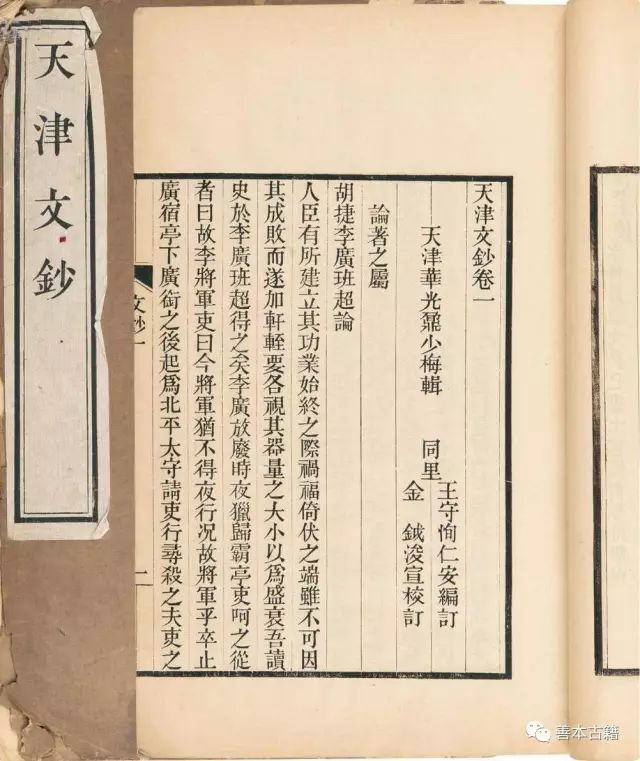 天津文鈔
天津文鈔卷一
天津華光鼐少梅輯
同里
王守恂仁安編訂
金鉞浚宣校訂
論著之屬
胡捷李廣班超論
人臣有所建立其功業始終之際禍福倚伏之端雖不可因
其成敗而遂加軒輊要各視其器量之大小以爲盛衰吾讀
史於李廣班超得之矣李廣放廢時夜獵歸霸亭吏呵之從
者曰故李將軍吏曰今將軍猶不得夜行况故將軍乎卒止
廣宿亭下廣銜之後起爲北平太守請吏行尋殺之夫吏之
文鈔一
一
善本古籍